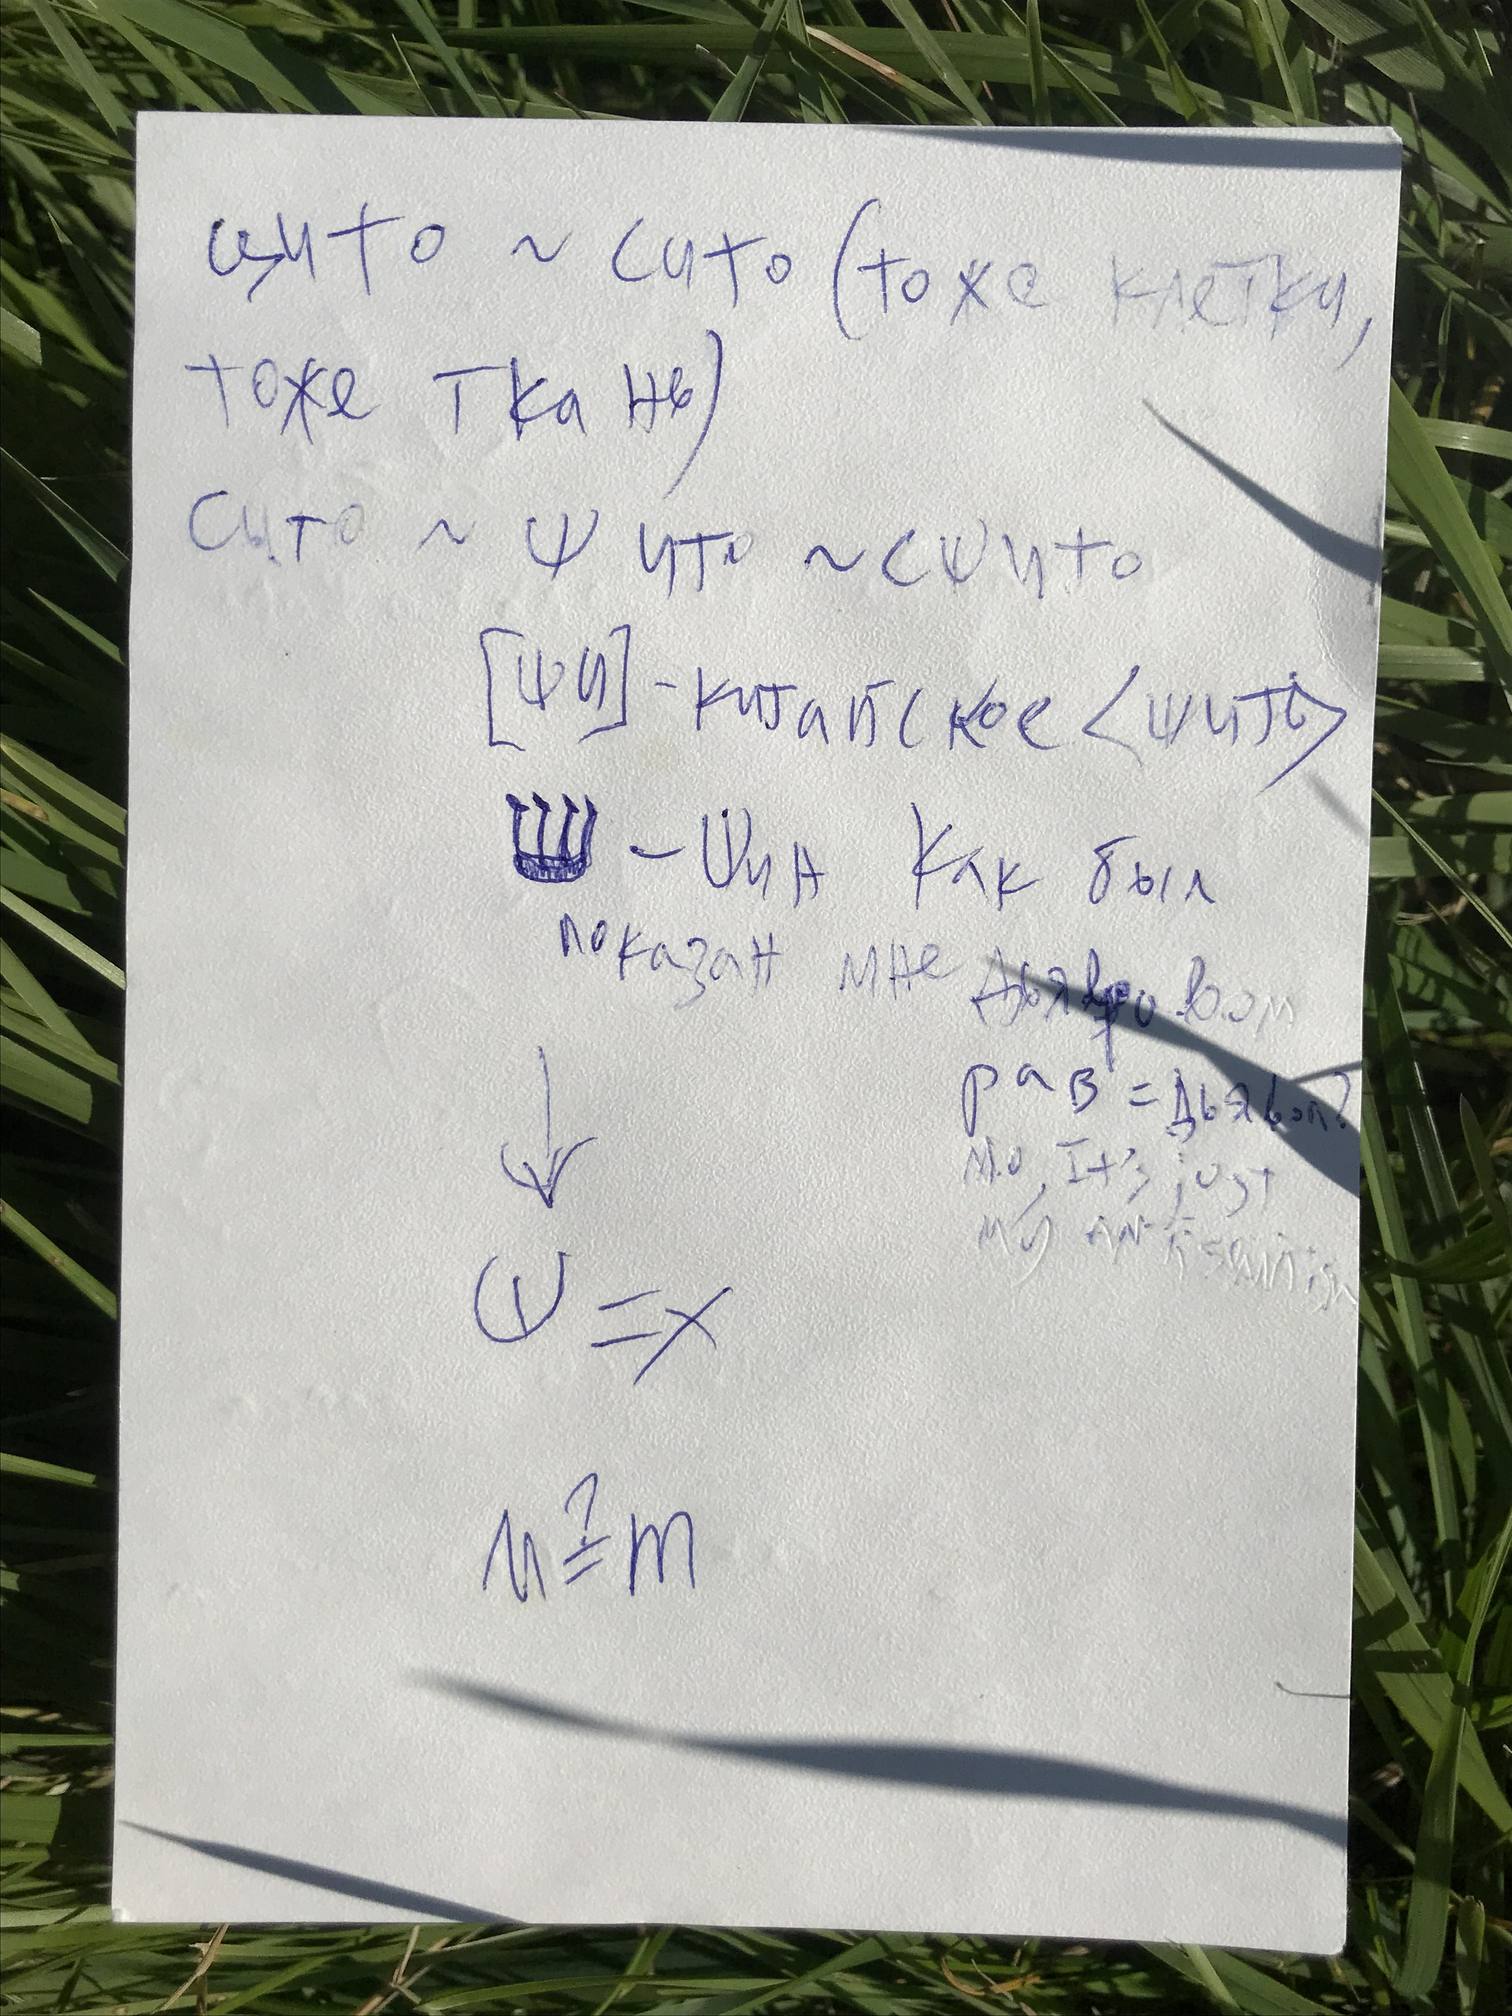 цито ~ сито (тоже клетки,
тоже ткань)
Сито ~ ψито ~ сψито
[ψи] - китайское <ψить>
Ш - Ψин как был
показан мне
рав = дьявол?
No, It's just
my antisemitism
ψ = x
и ≟ m